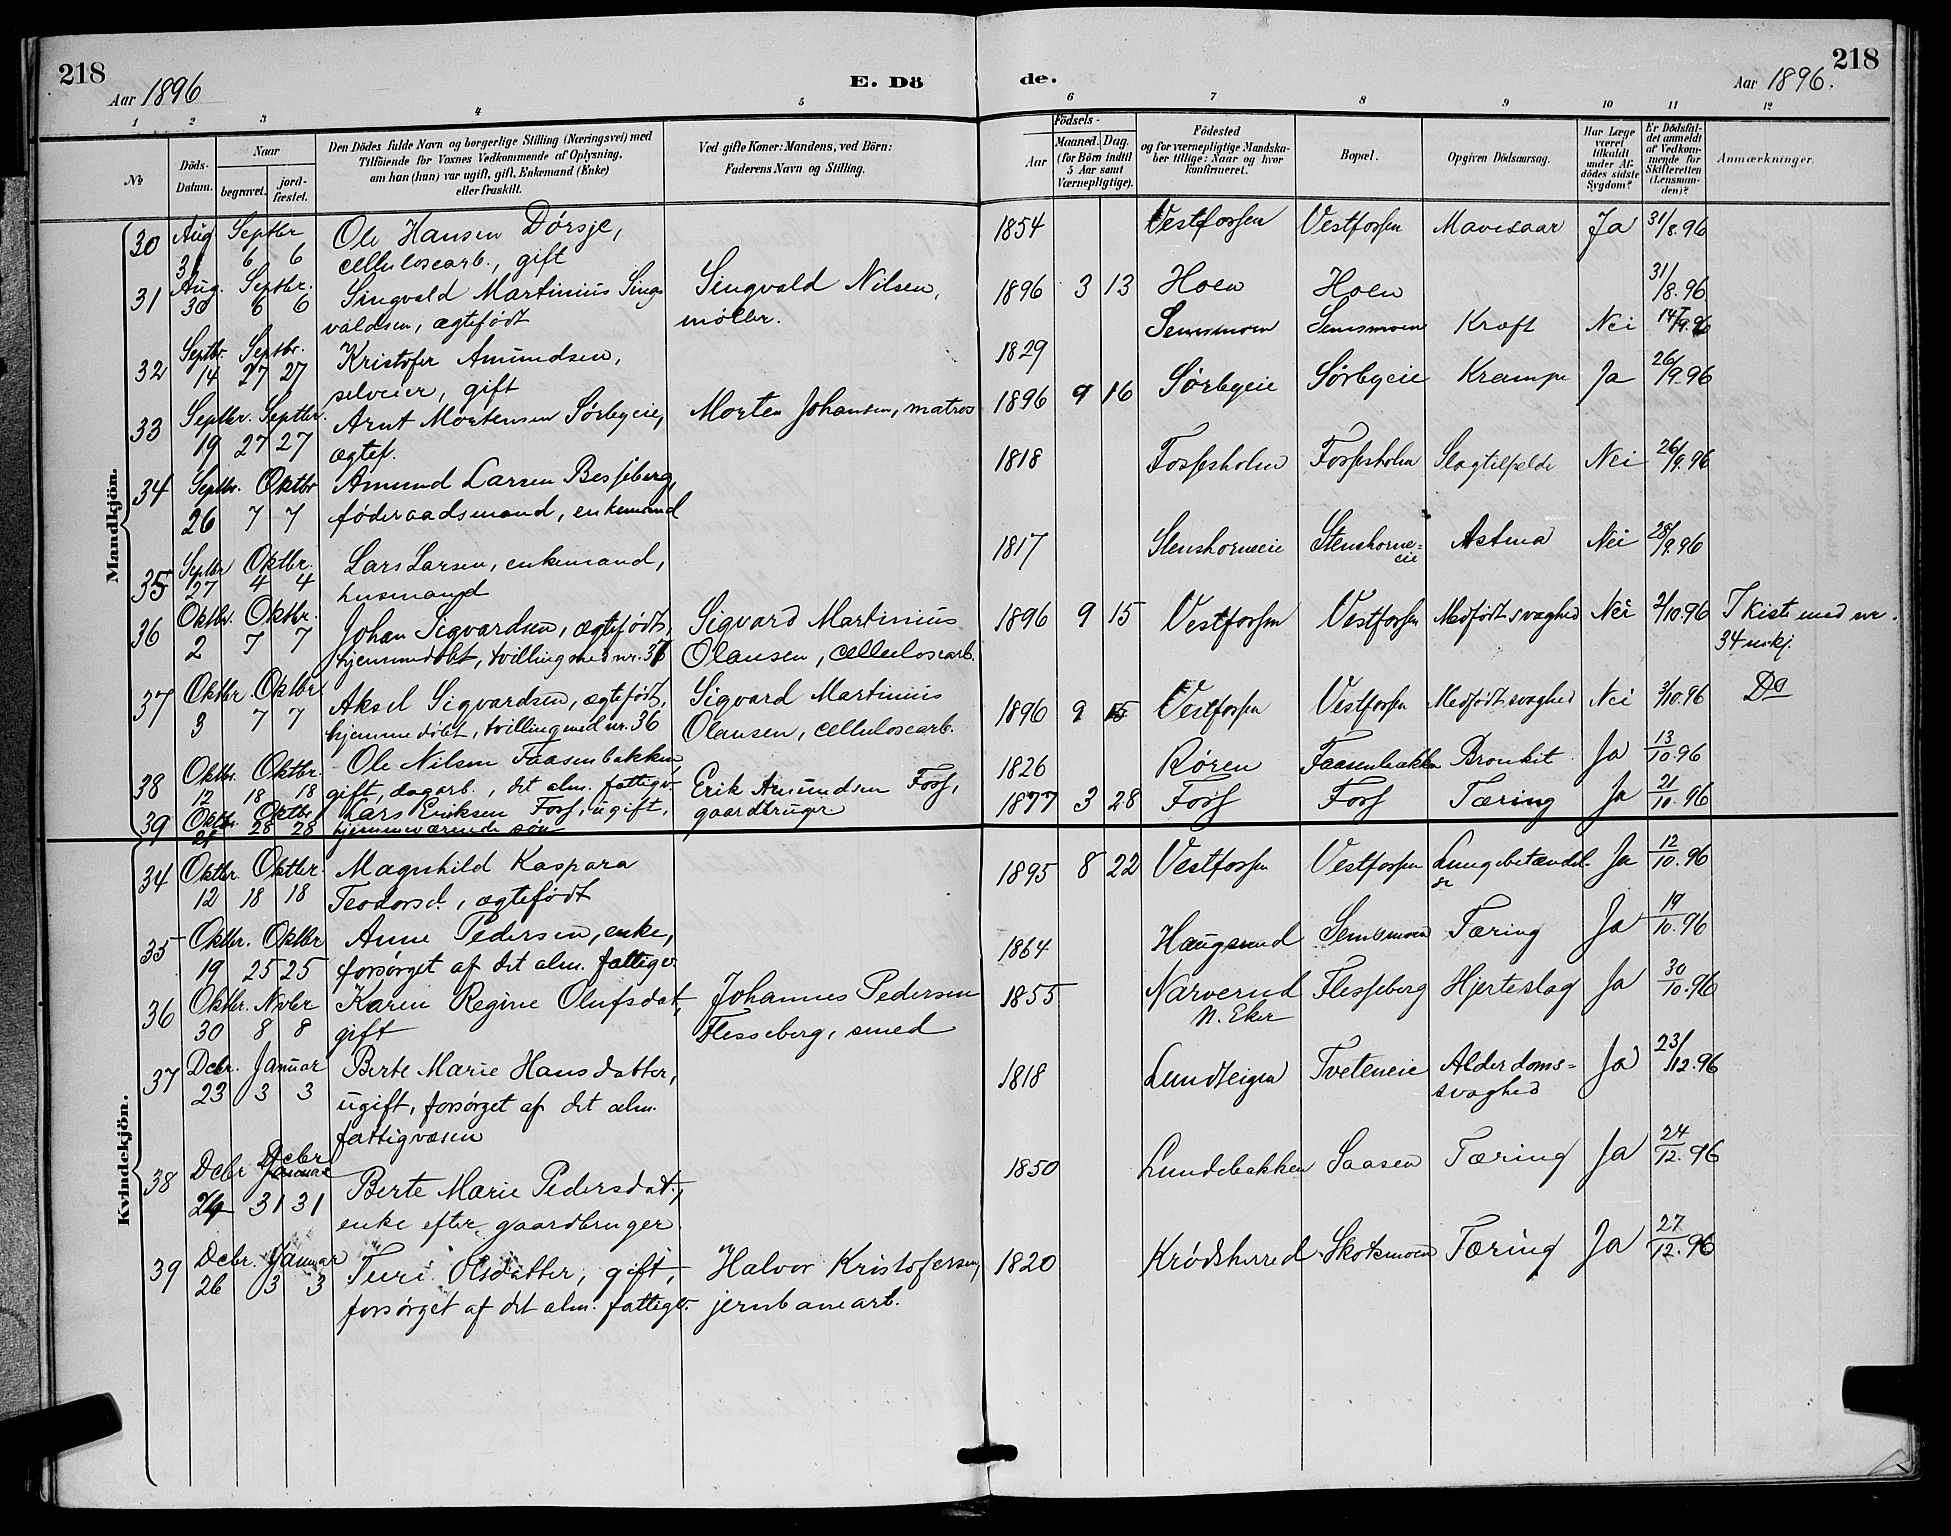 218
Aar 1896
E. Dö
de.
Aar 1896.
218
1 2 3 4 5 6 7 8 9 10 11 12
№
Döds-
Datum.
Naar
begravet.
jord-
fæstet.
Den Dödes fulde Navn og borgerlige Stilling (Næringsvei) med
Tilföiende for Voxnes Vedkommende af Oplysning,
om han (hun) var ugift, gift, Enkemand (Enke)
eller fraskilt.
Ved gifte Koner: Mandens, ved Börn:
Faderens Navn og Stilling.
Födsels-
Aar
Maaned. Dag.
(for Börn indtil
5 Aar samt
Værnepligtige).
Födested
og for værnepligtige Mandska-
ber tillige: Naar og hvor
konfirmeret.
Bopæl.
Opgiven Dödsaarsag.
Har Læge
været
tilkaldt
under Af-
dödes sidste
Sygdom?
Er Dödsfal-
det anmeldt
af Vedkom-
mende for
Skifteretten
(Lensman-
den)?
Anmærkninger.
Mandkjön.
30 Aug Septbr Ole Hansen Dørsje, 1854 Vestfossen Vestfossen Mavesaar Ja 31/8.96
31 6 6 cellulosearb., gift
31 Aug. Septbr. Singvald Martinius Sings Singvald Nilsen, 1896 3 13 Hoen Hoen 31/8.96
30 6 6 valdsen, ægtefödt møller.
32 Septbr. Septbr. Kristofer Amundsen, 1829 Semsmoen Semsmoen Kræft Nei 14/9.96
14 27 27 selveier, gift
33 Septbr. Septbr. Arnt Mortensen Sörbyeie, Morten Johansen, matros 1896 9 16 Sørbyeie Sørbyeie Krampe Ja 26/9.96
19 27 27 ægtef.
34 Septbr. Oktbr Amund Larsen Besseberg, 1818 Fossesholm Fossesholm Slagtilfælde Nei 26/9.96
26 7 7 føderaadsmand, enkemand
35 Septbr Oktbr. Lars Larsen, enkemand, 1817 Stenshorneeie Stenshorne=
eie Astma Nei 28/9.96
27 4 4 husmand
36 Oktbr. Oktbr. Johan Sigvardsen, ægtefødt, Sigvard Martinius 1896 9 15 Vestfossen Vestfossen Medfødt svaghed Nei 2/10.96 I kiste med nr.
2 7 7 hjemmedøbt, tvilling med nr. 37 Olausen, celluloscarb. 34 mkj.
37 Oktbr Oktbr Aksel Sigvardsen, ægtefødt, Sigvard Martinius 1896 9 15 Vestfossen Vestfossen Medfødt svaghed Nei 3/10.96 Do
3 7 7 hjemmedøbt, tvilling med nr. 36 Olausen, celluloscarb.
38 Oktbr. Oktbr. Ole Nilsen Faasenbakken 1826 Røren Faasenbakken Bronkit Ja 13/10.96
12 18 18 gift, dagarb., det alm. fattigv.
39 Oktbr. Oktbr Lars Eriksen Foss, ugift, Erik Amundsen Foss, 1877 3 28 Foss Foss Tæring Ja 21/10.96
21 28 28 hjemmeværende søn gaardbruger
Kvindekjön.
34 Oktbr. Oktbr. Magnhild Kaspara 1895 8 22 Vestfossen Vestfossen Lungebetændel-
se Ja 12/10.96
12 18 18 Teodorsd., ægtefödt
35 Oktbr. Oktbr Anne Pedersen, enke, 1864 Haugsund Semsmoen Tæring Ja 19/10.96
19 25 25 forsørget af det alm. fattigv.
36 Oktbr. Nvbr Karen Regine Olufsdat, Johannes Pedersen 1855 Narverud Flesseberg Hjerteslag Ja 30/10.96
30 8 8 gift Flesseberg, smed N. Eker
37 Dcbr. Januar Berte Marie Hansdatter, 1818 Lundteigen Tveteneie Alderdoms=
svaghed Ja 23/12.96
23 3 3 ugift, forsørget af det alm.
fattigvæsen
38 Dcbr Dcbr
Januar Berte Marie Pedersdat., 1850 Lundebakken Saasen Tæring Ja 24/12.96
24 31 31 enke efter gaardbruger
39 Dcbr. Januar Turi Olsdatter, gift, Halvor Kristofersen, 1820 Krødsherred Skotsmoen Tæring Ja 27/12.96
26 3 3 forsørget af det alm. fattigv. jernbanearb.